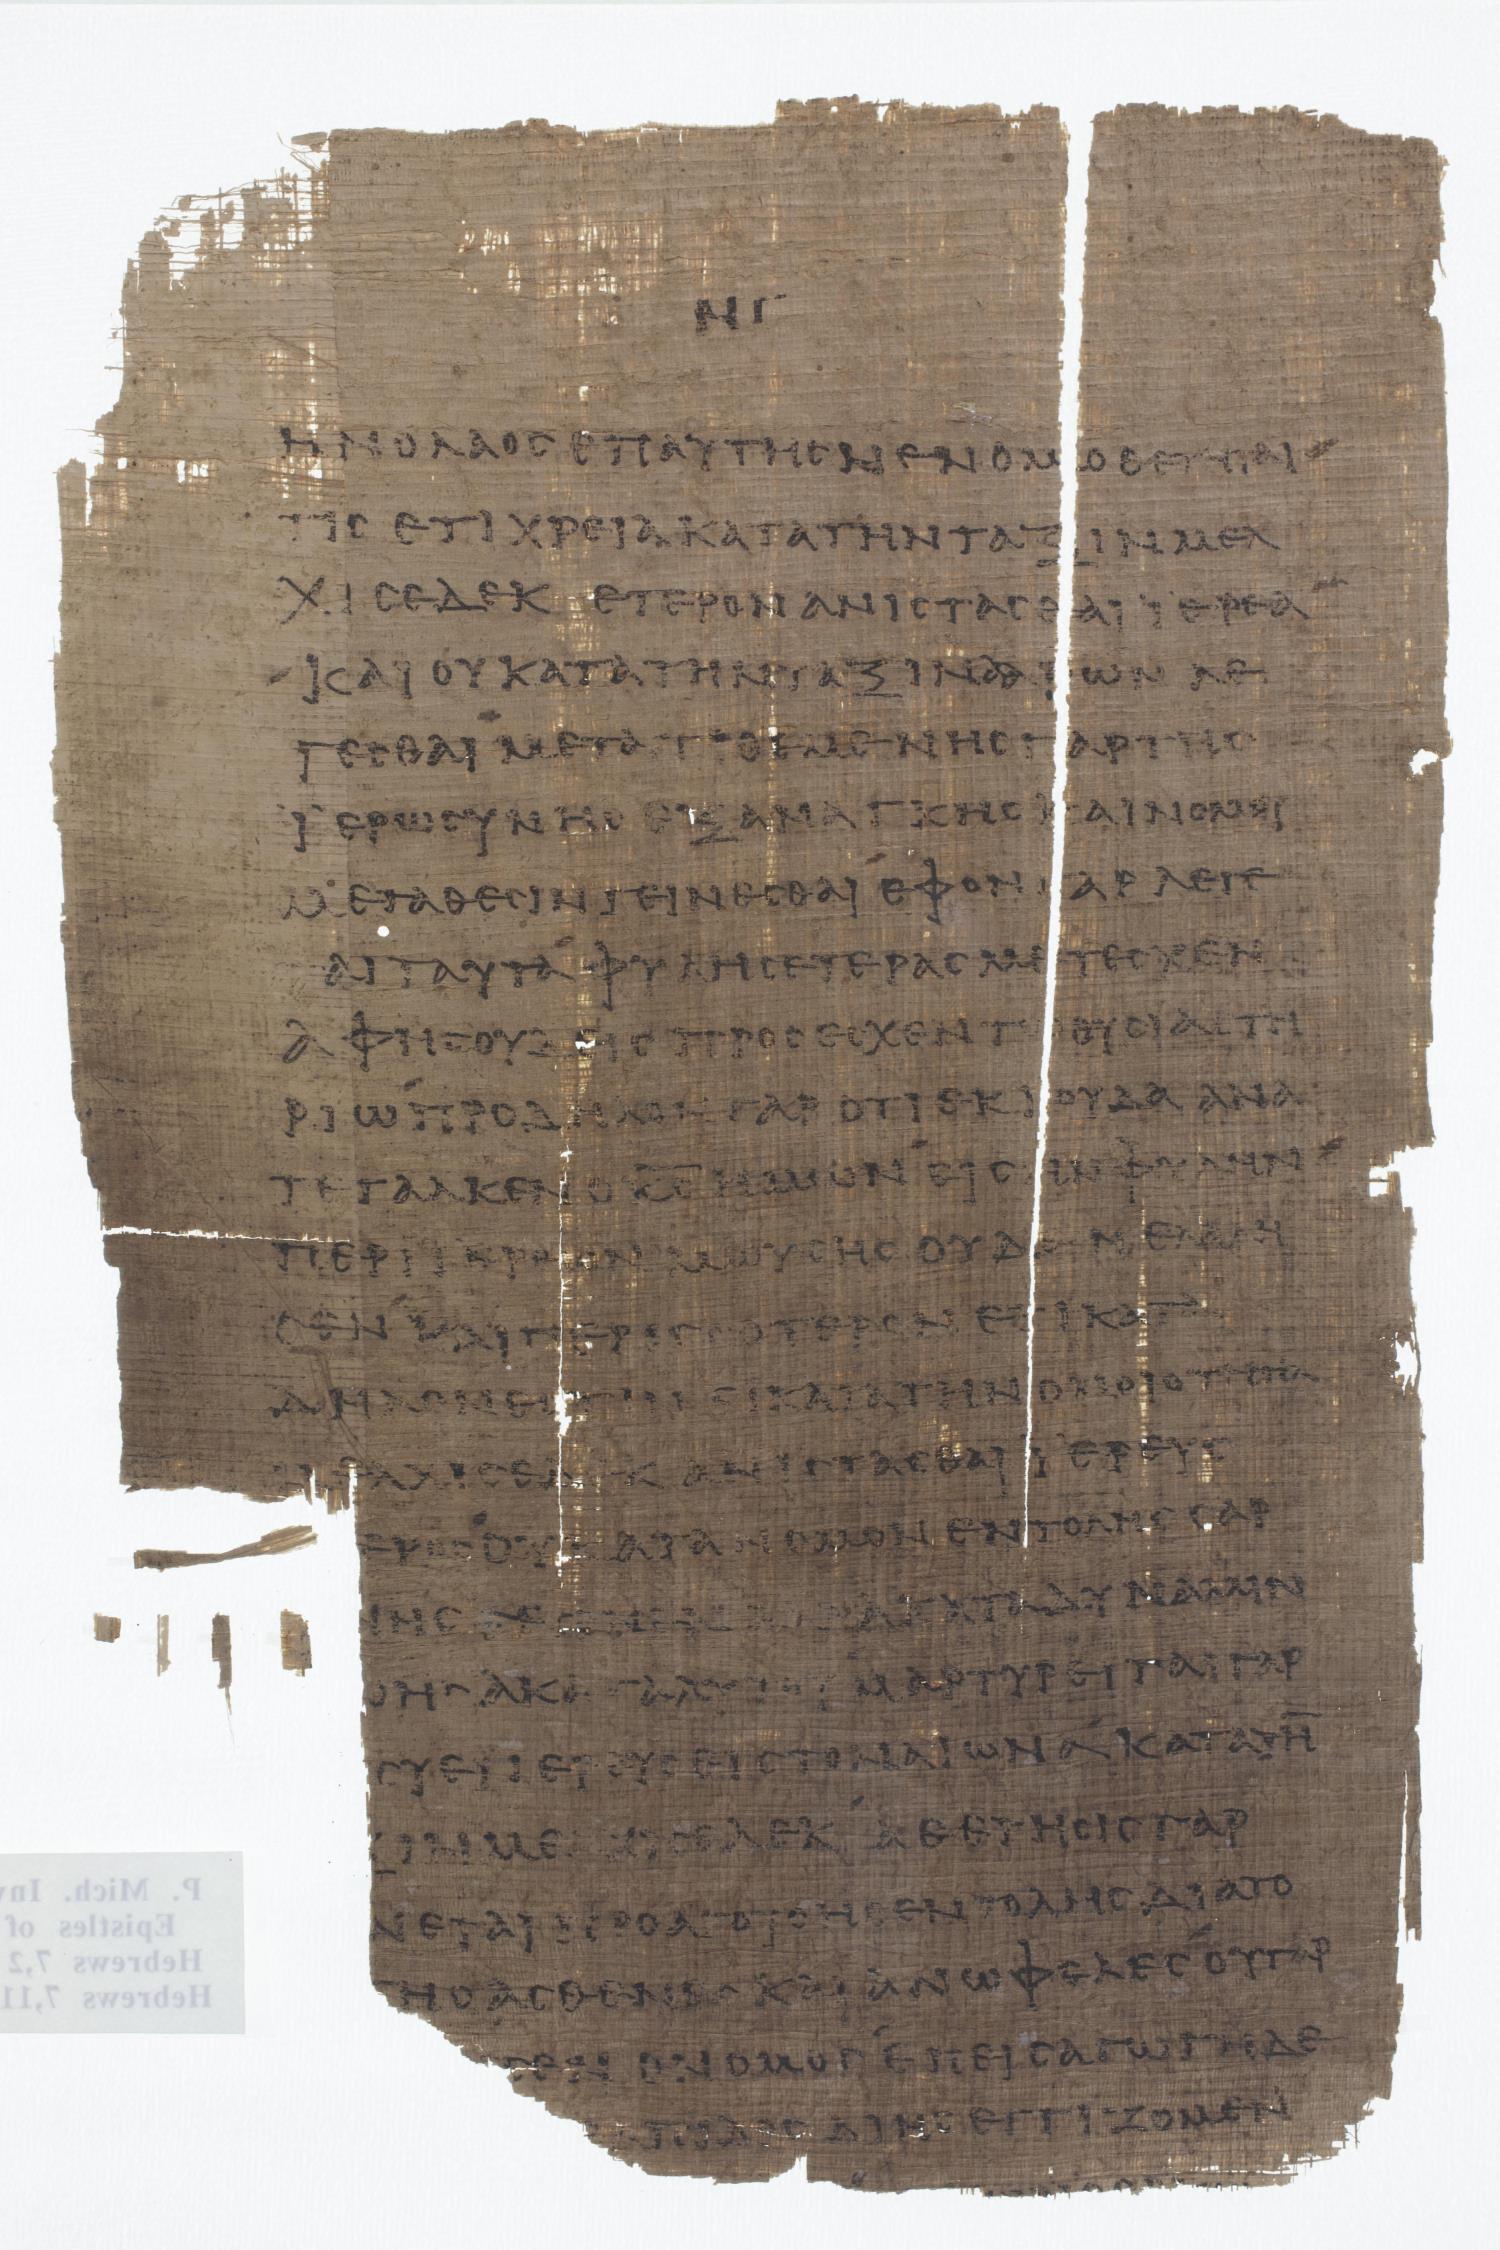 ΝΓ
ΗΝ Ο ΛΑΟΣ ΕΠ ΑΥΤΗΣ ΝΕΝΟΜΟΘΕΤΗΤΑΙ
ΤΙΣ ΕΤΙ ΧΡΕΙΑ ΚΑΤΑ ΤΗΝ ΤΑΞΙΝ ΜΕΛ
ΧΙΣΕΔΕΚ ΕΤΕΡΟΝ ΑΝΙΣΤΑΣΘΑΙ ΪΕΡΕΑ
ΚΑΙ ΟΥ ΚΑΤΑ ΤΗΝ ΤΑΞΙΝ ΑΑΡΩΝ ΛΕ
ΓΕΣΘΑΙ ΜΕΤΑΤΙΘΕΜΕΝΗΣ ΓΑΡ ΤΗΣ
ΪΕΡΩΣΥΝΗΣ ΕΞ ΑΝΑΓΚΗΣ ΚΑΙ ΝΟΜΟΥ
ΜΕΤΑΘΕΣΙΝ ΓΕΙΝΕΣΘΑΙ ΕΦ ΟΝ ΓΑΡ ΛΕΓΕ
ΑΙ ΤΑΥΤΑ ΦΥΛΗΣ ΕΤΕΡΑΣ ΜΕΤΕΣΧΕΝ
ΑΦ ΗΣ ΟΥΔΕΙΣ ΠΡΟΣΕΣΧΕΝ ΤΩ ΘΥΣΙΑΣΤΗ
ΡΙΩ ΠΡΟΔΗΛΟΝ ΓΑΡ ΟΤΙ ΕΚ ΙΟΥΔΑ ΑΝΑ
ΤΕΤΑΛΚΕΝ Ο Κ̅Σ̅ ΗΜΩΝ ΕΙΣ ΗΝ ΦΥΛΗΝ
ΠΕΡΙ ΙΕΡΕΩΝ ΜΩΥΣΗΣ ΟΥΔΕΝ ΕΛΑΛΗ
ΣΕΝ ΚΑΙ ΠΕΡΙΣΣΟΤΕΡΟΝ ΕΤΙ ΚΑΤΑ
ΔΗΛΟΝ ΕΣΤΙΝ ΕΙ ΚΑΤΑ ΤΗΝ ΟΜΟΙΟΤΗΤΑ
ΜΕΛΧΙΣΕΔΕΚ ΑΝΙΣΤΑΣΘΑΙ ΪΕΡΕΥΣ
ΕΡΟΣ ΟΥ ΚΑΤΑ ΝΟΜΟΝ ΕΝΤΟΛΗΣ ΓΑΡ
ΝΗΣ ΓΕΓΟΝΕΝ ΑΛΛΑ ΚΑΤΑ ΔΥΝΑΜΙΝ
ΩΗΣ ΑΚΑΤΑΛΥΤΟΥ ΜΑΡΤΥΡΕΙΤΑΙ ΓΑΡ
ΣΥ ΕΙ ΙΕΡΕΥΣ ΕΙΣ ΤΟΝ ΑΙΩΝΑ ΚΑΤΑ ΤΗ̅
ΞΙΝ ΜΕΛΧΙΣΕΔΕΚ ΑΘΕΤΗΣΙΣ ΓΑΡ
ΝΕΤΑΙ ΠΡΟΑΓΟΥΣΗΣ ΕΝΤΟΛΗΣ ΔΙΑ ΤΟ
ΤΗΣ ΑΣΘΕΝΕΣ ΚΑΙ ΑΝΩΦΕΛΕΣ ΟΥ ΓΑΡ
ΣΕΝ Ο ΝΟΜΟΣ ΕΠΕΙΣΑΓΩΓΗ ΔΕ
ΕΛΠΙΔΟΣ ΔΙ ΗΣ ΕΓΓΙΖΟΜΕΝ
P. Mich. Inv
Epistles of
Hebrews 7,2
Hebrews 7,11